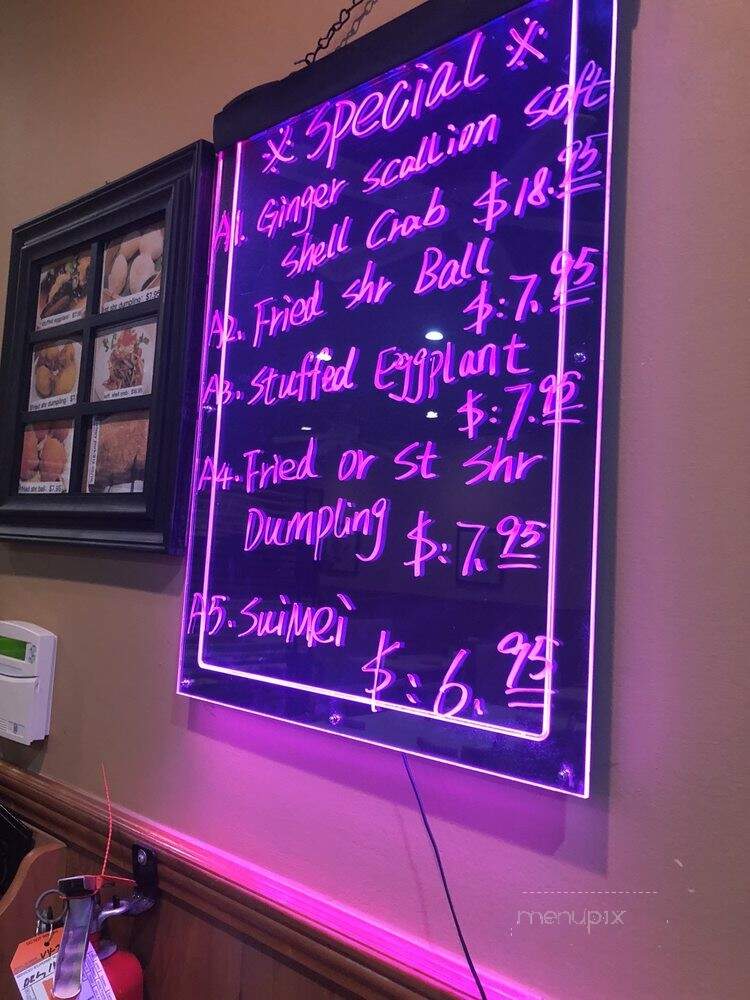 ※ Special ※
A1. Ginger Scallion Soft
Shell Crab $18.95
A2. Fried Shr Ball
$:7.95
A3. Stuffed Eggplant
$:7.95
A4. Fried or St Shr
Dumpling $:7.95
A5. SuiMei
$:6.95
stuffed eggplant $7.95
shr dumpling $7.95
fried shr dumpling $7
soft shell crab
fried shr ball $7.95
menupix